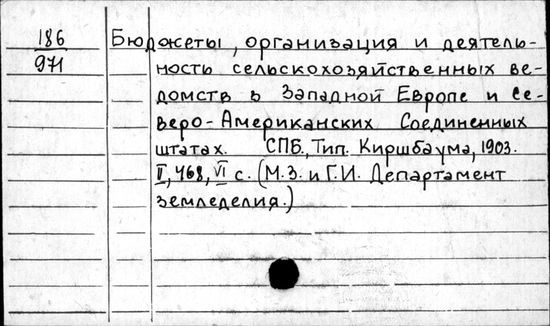 186
971
Бюджеты, организация и деятель-
ность сельскохозяйственных ве-
домств в Западной Европе и Се-
веро-Американских Соединенных
штатах. СПБ, Тип. Киршбаума, 1903.
II, 468, VI с. (М.З. и Г.И. Департамент
земледелия.)